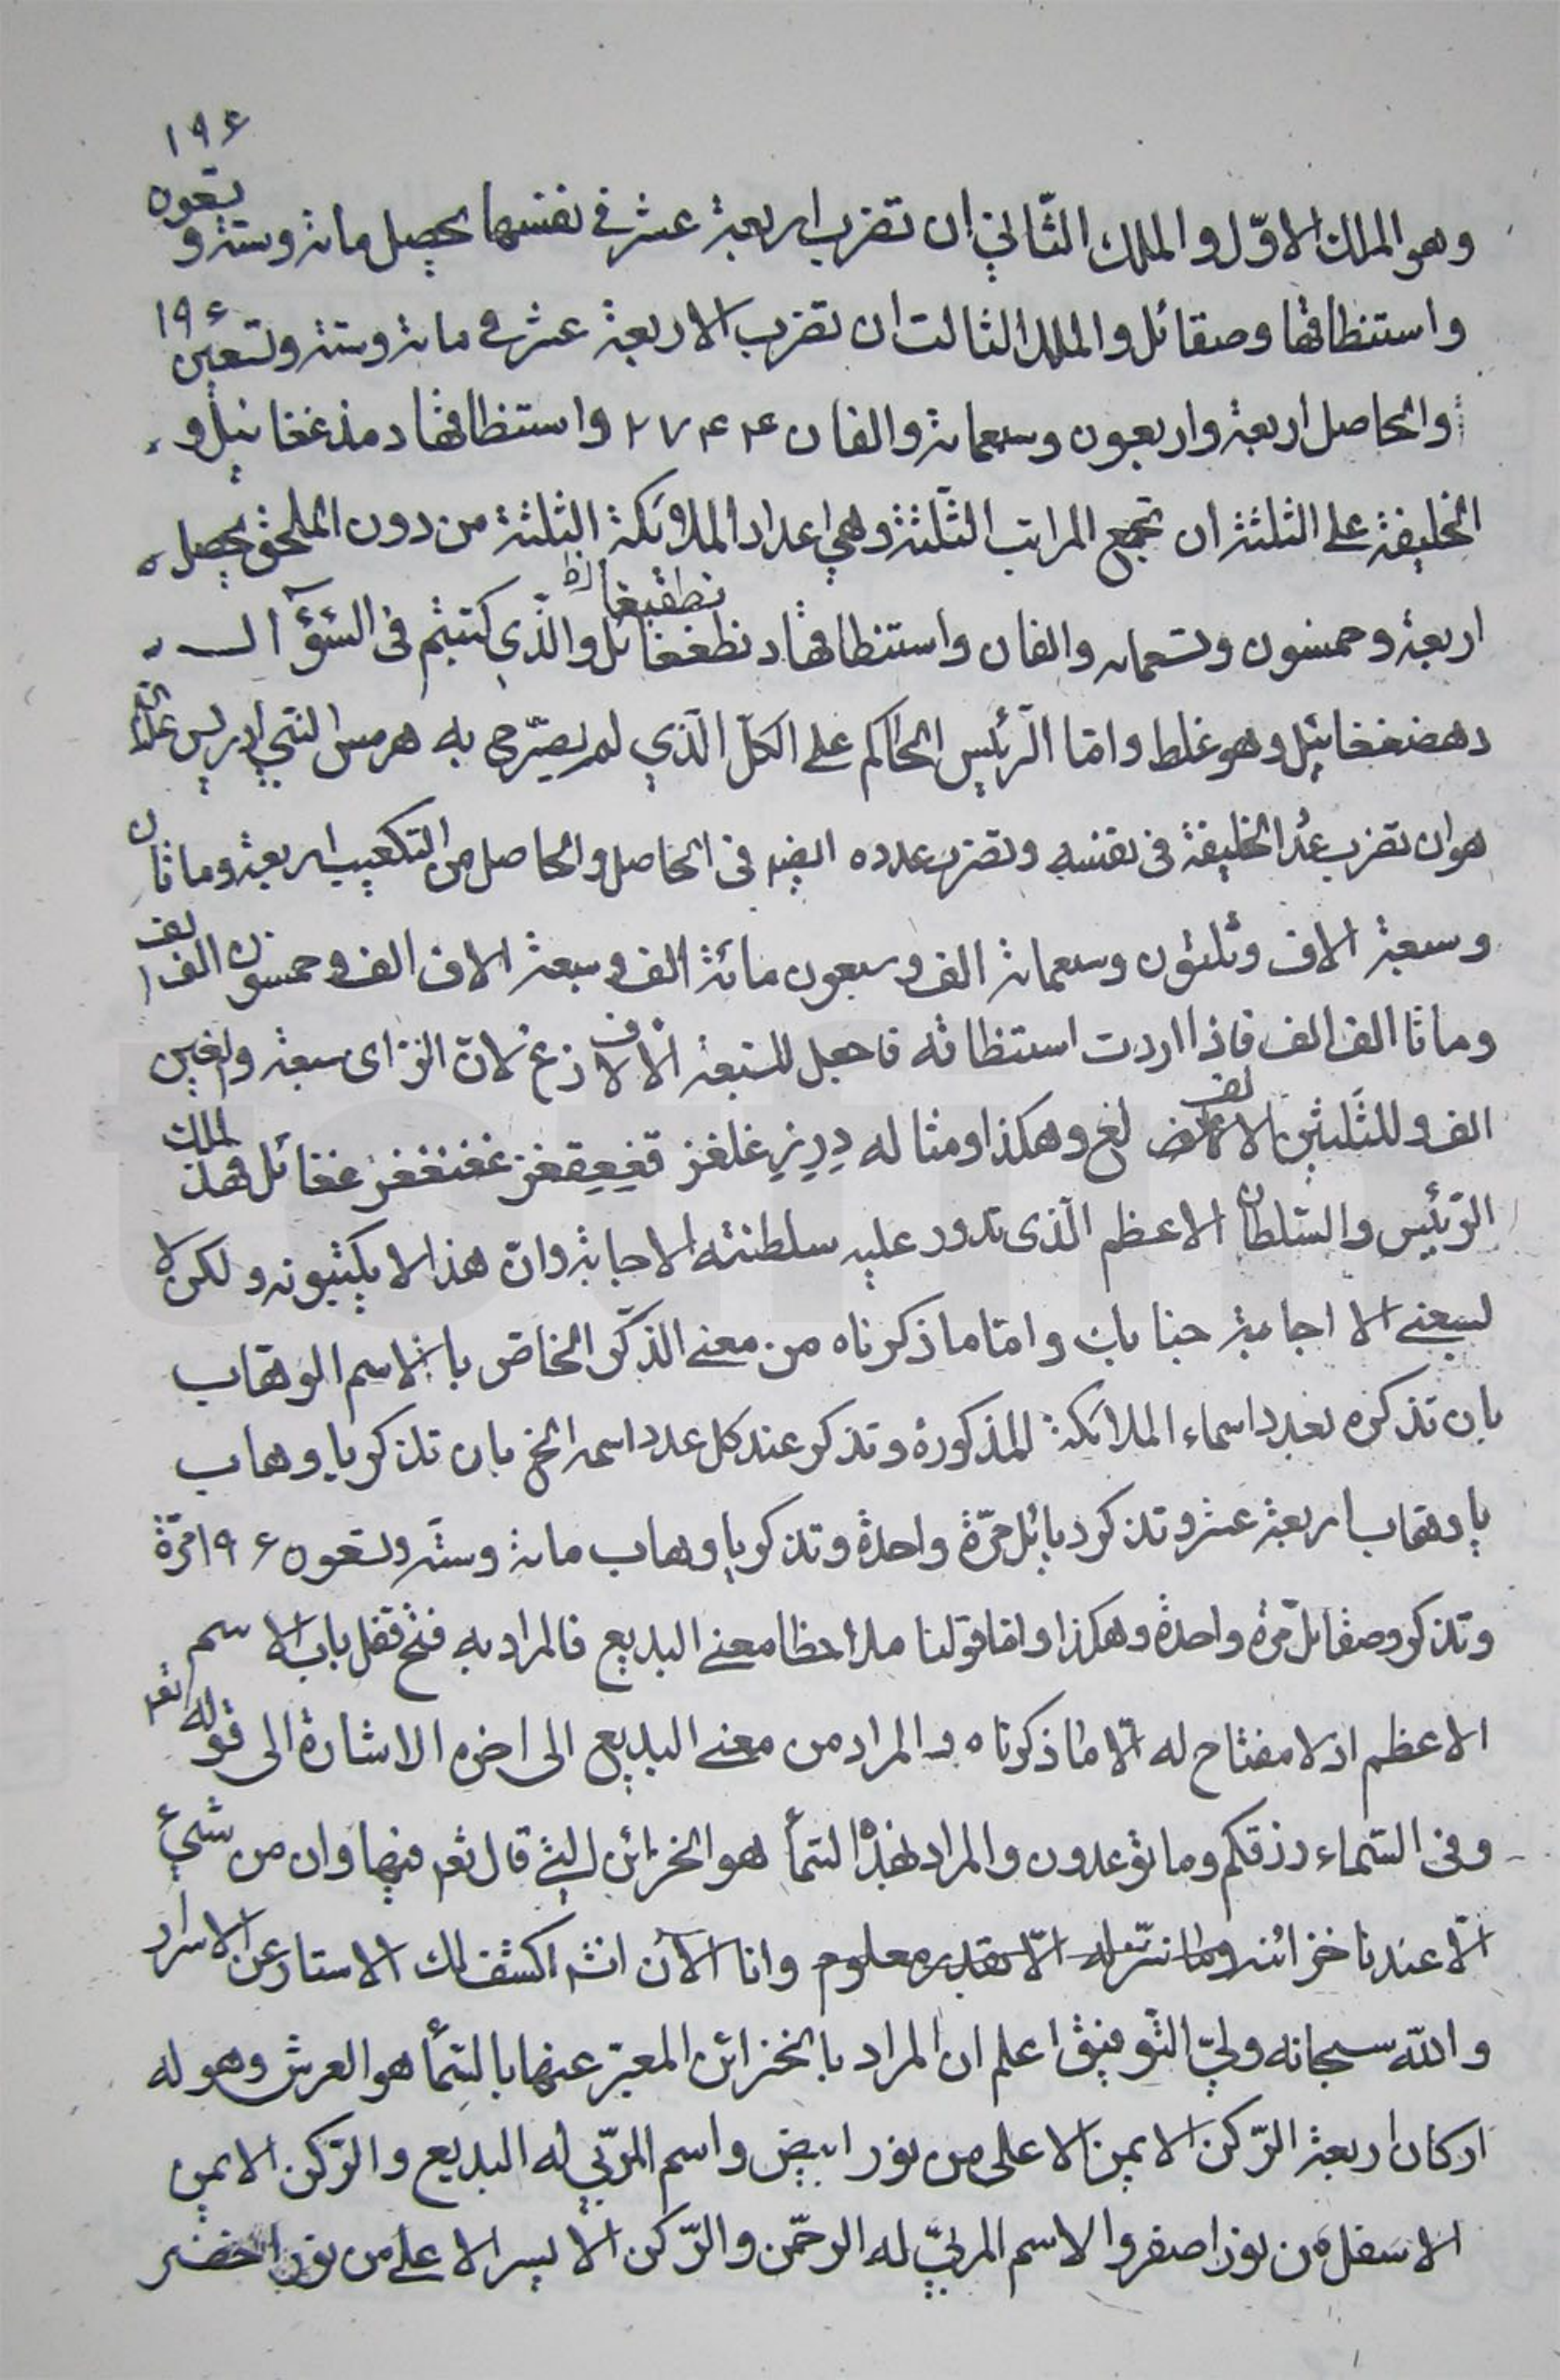 ١٩۶
وهو الملك الاوّل والملك الثّاني ان تضرب اربعة عشر في نفسها يحصل مائة وستة وتسعون
واستنطاقها وصقائل والملك الثالث ان تضرب الاربعة عشر في مائة وستة وتسعين ١٩۶
والحاصل اربعة واربعون وسبعمائة والفان ٢٧۴۴ واستنطاقها دمذغغائيل و
الخليفة على الثلثة ان تجمع المراتب الثّلثة وهي اعداد الملائكة الثلثة من دون الملحق يحصل
اربعة وخمسون وتسعمائه والفان واستنطاقها دنظغغائل والّذي كتبتم في السّؤال
دهضغغائيل وهو غلط وامّا الرّئيس الحاكم على الكلّ الّذي لم يصرّح به هرمس النبي ادريس
هو ان تضرب عدد الخليفة في نفسه وتضرب عدده ايضا في الحاصل والحاصل من التكعيب اربعة ومائتان
وسبعة الاف وثلثون وسبعمائة الف وسبعون مائة الف وسبعة الاف الف وخمسون الف الف
ومائتا الف الف فاذا اردت استنطاقه فاجعل للسّبعة الالاف زغ لانّ الزاى سبعة والغين
الف وللثّلثين الالف لغ وهكذا ومثاله
الرّئيس والسّلطان الاعظم الّذى تدور عليه سلطنته الاجابة وانّ هذا لا يكتبونه ولكن لا
يعني الا اجابة جنابك وامّا ما ذكرناه من معنى الذكر الخاص بالاسم الوهّاب
بان تذكره بعدد اسماء الملائكة المذكورة وتذكر عند كل عدد اسمه الخ بان تذكر يا وهاب
يا وهّاب اربعة عشر وتذكر ديائل مرّة واحدة وتذكر يا وهاب مائة وستّة وتسعون ١٩۶ مرّة
وتذكر وصقائل مرّة واحدة وهكذا وامّا قولنا ملاحظا معنى البديع فالمراد به فتح قفل باب الاسم
الاعظم اذ لا مفتاح له الّا ما ذكرناه المراد من معنى البديع الى اخره الاشارة الى قوله تعم
وفى السّماء رزقكم وما توعدون والمراد بهذا السّماء هو الخزائن التي قال تعم فيها وان من شيئ
الّا عندنا خزائنه وما ننزّله الّا بقدر معلوم وانا الآن انشاء اكشف لك الاستار عن الاسرار
والله سبحانه وليّ التّوفيق اعلم ان المراد بالخزائن المعبّر عنها بالسّماء هو العرش وهو له
اركان اربعة الرّكن الايمن الاعلى من نور ابيض واسم المربّي له البديع والرّكن الايمن
الاسفل من نور اصفر والاسم المربّي له الرحمّن والرّكن الايسر الاعلى من نور اخضر